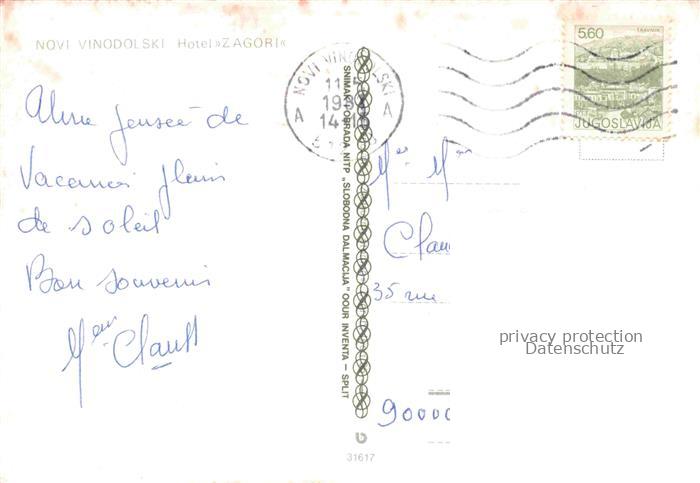 NOVI VINODOLSKI Hotel »ZAGORI«
pensée de
Vacances plein
de soleil
Bon souvenir
SNIMAK I OBRADA NITP „SLOBODNA DALMACIJA" OOUR INVENTA – SPLIT
31617
NOVI VIN
SKI
A A
5.60
TRAVNIK
JUGOSLAVIJA
35 rue
90000
privacy protection
Datenschutz